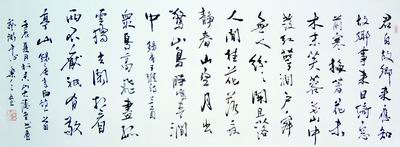 君自故鄉來應知
故鄉事來日綺窗
前寒梅著花未
木末芙蓉花山中
發紅萼澗戶寂
無人紛紛開且落
人閒桂花落夜
靜春山空月出
驚山鳥時鳴春澗
中
眾鳥高飛盡孤
雲獨去閒相看
兩不厭只有敬
亭山 錄唐李白詩一首